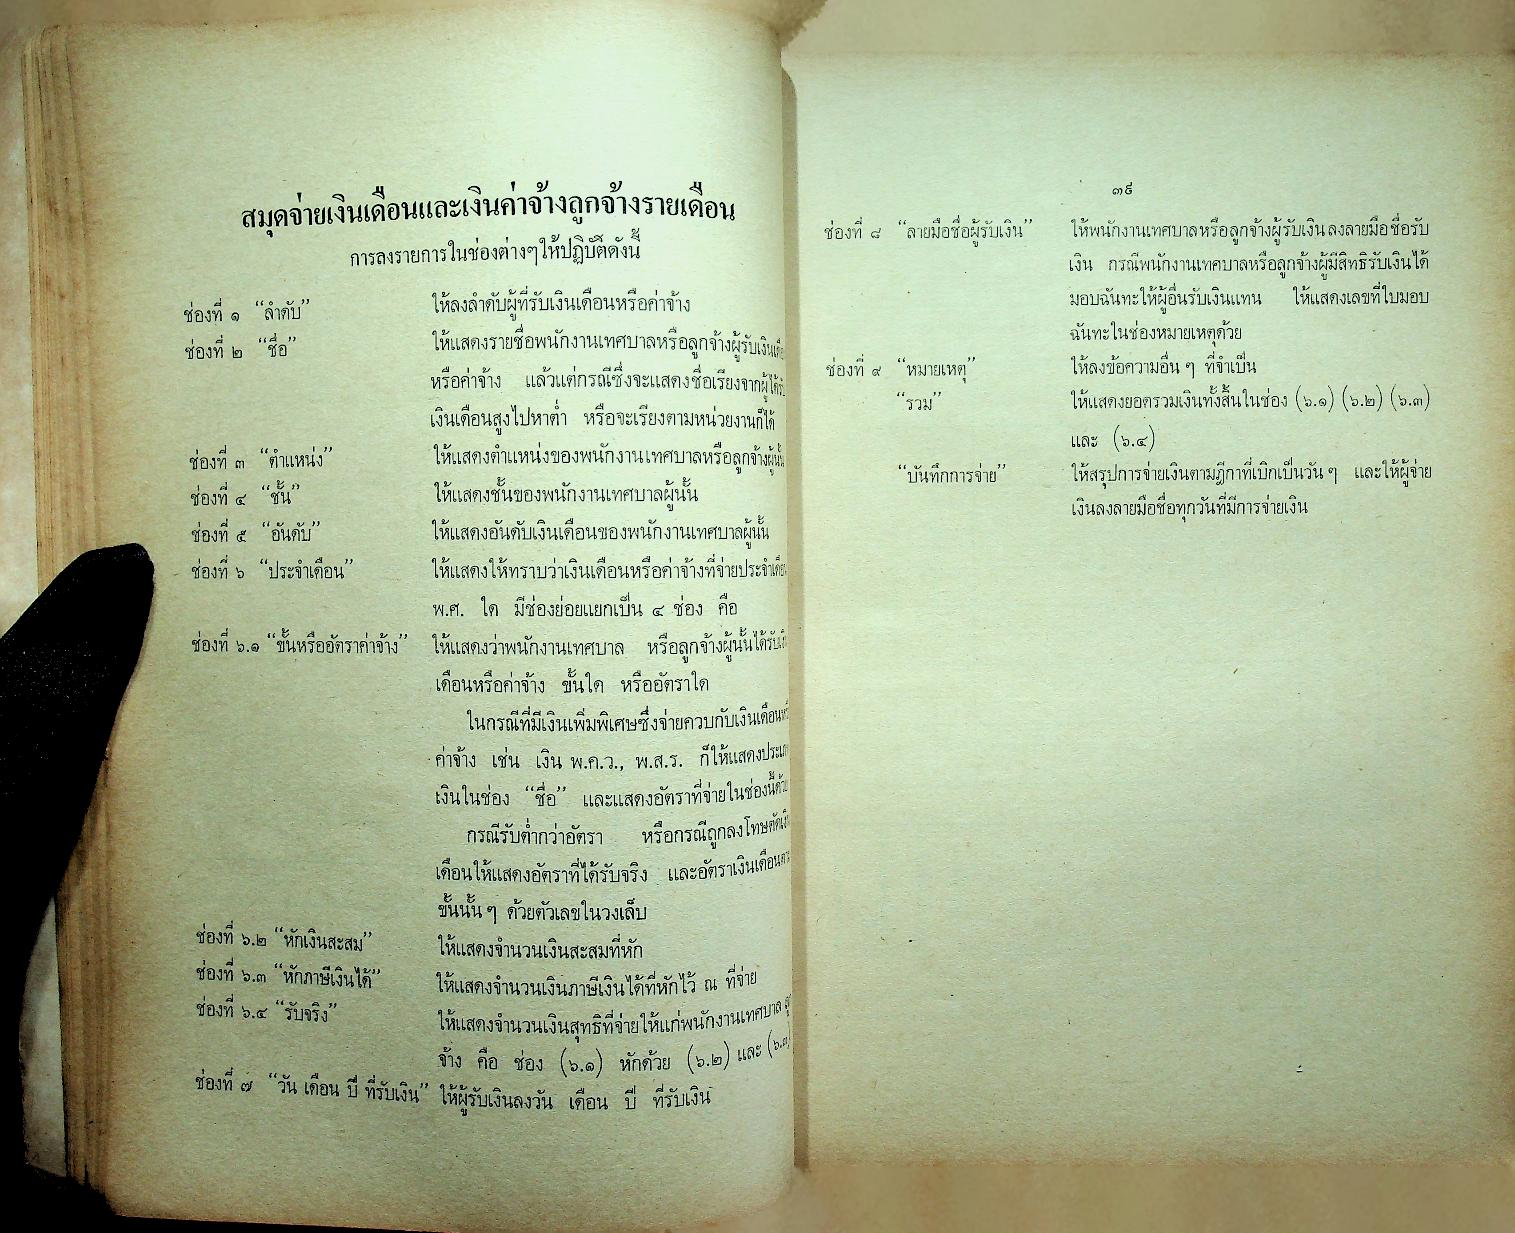 สมุดจ่ายเงินเดือนและเงินค่าจ้างลูกจ้างรายเดือน
การลงรายการในช่องต่างๆให้ปฏิบัติดังนี้
ช่องที่ ๑ “ลำดับ” ให้ลงลำดับผู้ที่รับเงินเดือนหรือค่าจ้าง
ช่องที่ ๒ “ชื่อ” ให้แสดงรายชื่อพนักงานเทศบาลหรือลูกจ้างผู้รับเงิน
หรือค่าจ้าง แล้วแต่กรณีซึ่งจะแสดงชื่อเรียงจากผู้ได้
เงินเดือนสูงไปหาต่ำ หรือจะเรียงตามหน่วยงานก็ได้
ช่องที่ ๓ “ตำแหน่ง” ให้แสดงตำแหน่งของพนักงานเทศบาลหรือลูกจ้างผู้นั้น
ช่องที่ ๔ “ชั้น” ให้แสดงชั้นของพนักงานเทศบาลผู้นั้น
ช่องที่ ๕ “อันดับ” ให้แสดงอันดับเงินเดือนของพนักงานเทศบาลผู้นั้น
ช่องที่ ๖ “ประจำเดือน” ให้แสดงให้ทราบว่าเงินเดือนหรือค่าจ้างที่จ่ายประจำ
พ.ศ. ใด มีช่องย่อยแยกเป็น ๔ ช่อง คือ
ช่องที่ ๖.๑ “ขั้นหรืออัตราค่าจ้าง” ให้แสดงว่าพนักงานเทศบาล หรือลูกจ้างผู้นั้นได้รับ
เดือนหรือค่าจ้าง ขั้นใด หรืออัตราใด
ในกรณีที่มีเงินเพิ่มพิเศษซึ่งจ่ายควบกับเงินเดือน
ค่าจ้าง เช่น เงิน พ.ค.ว., พ.ส.ร. ก็ให้แสดง
เงินในช่อง “ชื่อ” และแสดงอัตราที่จ่ายในช่องนี้ด้วย
กรณีรับต่ำกว่าอัตรา หรือกรณีถูกลงโทษตัด
เดือนให้แสดงอัตราที่ได้รับจริง และอัตราเงินเดือน
ขั้นนั้นๆ ด้วยตัวเลขในวงเล็บ
ช่องที่ ๖.๒ “หักเงินสะสม” ให้แสดงจำนวนเงินสะสมที่หัก
ช่องที่ ๖.๓ “หักภาษีเงินได้” ให้แสดงจำนวนเงินภาษีเงินได้ที่หักไว้ ณ ที่จ่าย
ช่องที่ ๖.๔ “รับจริง” ให้แสดงจำนวนเงินสุทธิที่จ่ายให้แก่พนักงานเทศบาล
จ้าง คือ ช่อง (๖.๑) หักด้วย (๖.๒) และ (๖.๓)
ช่องที่ ๗ “วัน เดือน ปี ที่รับเงิน” ให้ผู้รับเงินลงวัน เดือน ปี ที่รับเงิน
๓๙
ช่องที่ ๘ “ลายมือชื่อผู้รับเงิน” ให้พนักงานเทศบาลหรือลูกจ้างผู้รับเงินลงลายมือชื่อรับ
เงิน กรณีพนักงานเทศบาลหรือลูกจ้างผู้มีสิทธิรับเงินได้
มอบฉันทะให้ผู้อื่นรับเงินแทน ให้แสดงเลขที่ใบมอบ
ฉันทะในช่องหมายเหตุด้วย
ช่องที่ ๙ “หมายเหตุ” ให้ลงข้อความอื่นๆ ที่จำเป็น
“รวม” ให้แสดงยอดรวมเงินทั้งสิ้นในช่อง (๖.๑) (๖.๒) (๖.๓)
และ (๖.๔)
“บันทึกการจ่าย” ให้สรุปการจ่ายเงินตามฎีกาที่เบิกเป็นวันๆ และให้ผู้จ่าย
เงินลงลายมือชื่อทุกวันที่มีการจ่ายเงิน